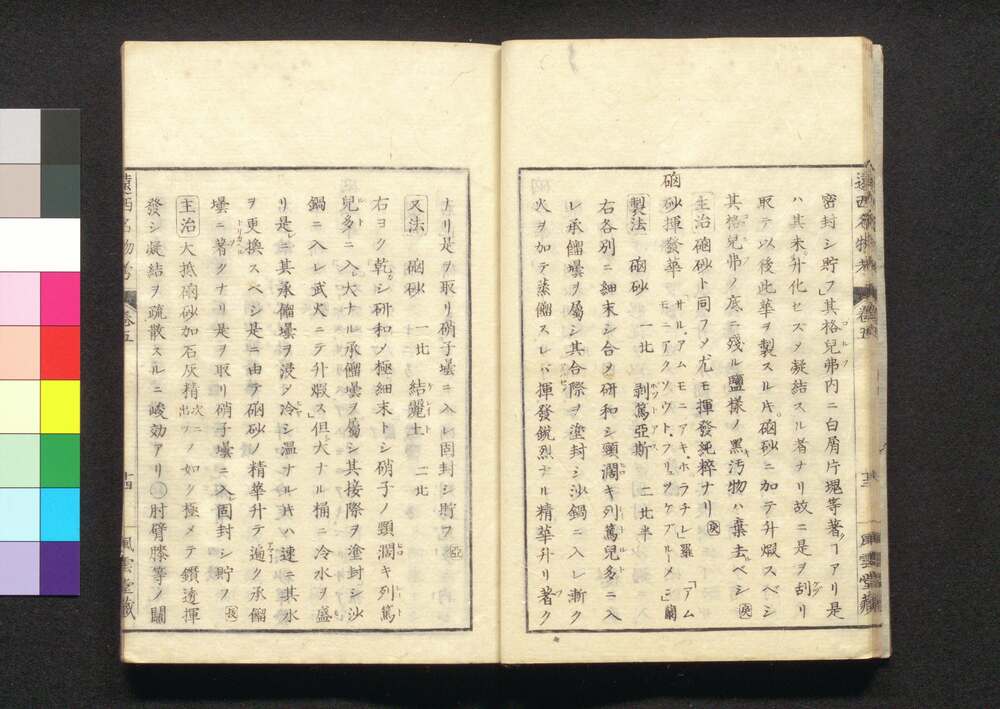 遠西名物考 卷五 廿三 風雲堂藏
密封シ貯フ」其格兒弗內ニ白屑片塊等著ヿアリ是
ハ其未升化セズ乄凝結スル者ナリ故ニ是ヲ刮リ
取テ以後此華ヲ製スル片硇砂ニ加テ升煆スベシ
其格兒弗ノ底ニ殘ル鹽樣ノ黑汚物ハ棄去ベシ
主治 硇砂ト同フ乄尤モ揮發純粹ナリ
硇砂揮發華 サルアムモニアキ・ホラチレ 羅 「アムモニアクソウト・フリュクケブルーメ」蘭
製法 硇砂 一北 剥篤亞斯 二北半
右各別ニ細末シ合乄研和シ頸濶キ列篤兒多ニ入
レ承餾壜ヲ屬シ其合際ヲ塗封シ沙鍋ニ入レ漸ク
火ヲ加テ蒸餾スレバ揮發銳烈ナル精華升リ著ク
ナリ是ヲ取リ硝子壜ニ入レ固封シ貯フ
又法 硇砂 一北 結麗土 二北
右ヨク乾シ研和乄極細末トシ硝子ノ頸濶キ列篤
兒多ニ入大ナル承餾壜ヲ屬シ其接際ヲ塗封シ沙
鍋ニ入レ武火ニテ升煆ス但大ナル桶ニ冷水ヲ盛
リ是ニ其承餾壜ヲ浸タ冷シ溫ナル片ハ速ニ其水
ヲ更換スベシ是ニ由テ硇砂ノ精華升テ遍ク承餾
壜ニ著クナリ是ヲ取リ硝子壜ニ入固封シ貯フ
主治 大抵硇砂加石灰精 次ニ出ツ ノ如ク極メテ鑽透揮
發シ凝結ヲ疏散スルニ峻効アリ 肘臂膝等ノ關
遠西名物考 卷五 廿四 風雲堂藏